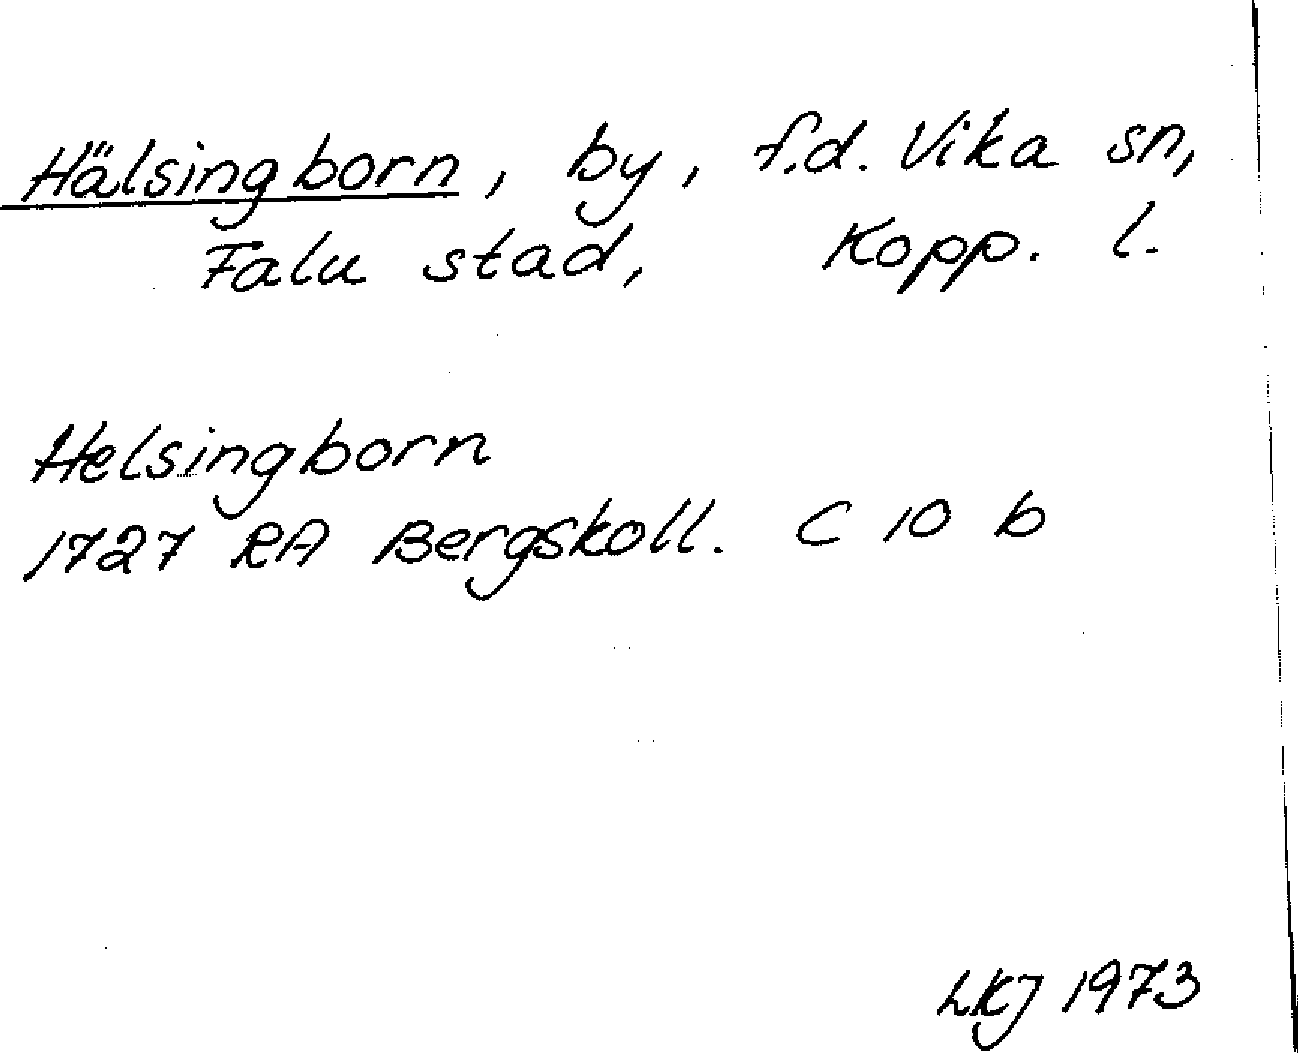 Hälsingborn, by, f.d. Vika sn,
Falu stad, Kopp. l.
Helsingborn
1727 RA Bergskoll. C 10 b
LKJ 1973